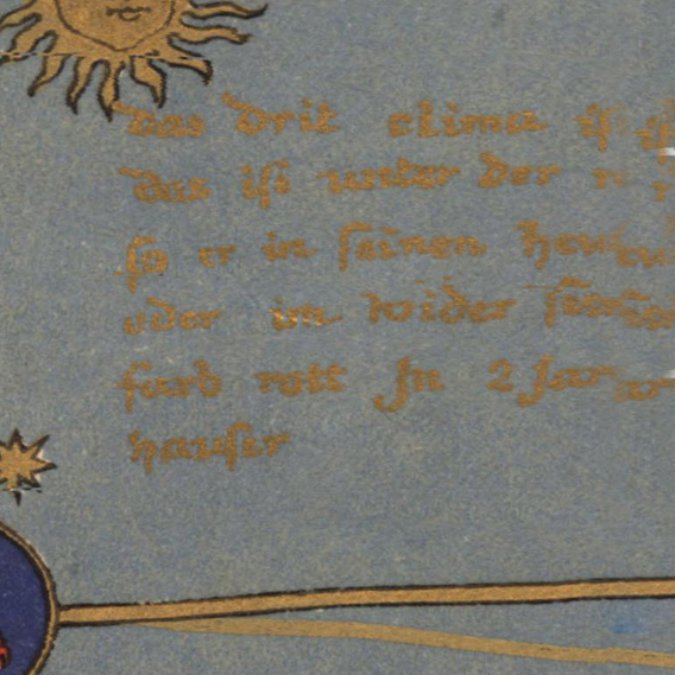 Das Drit clima
das ist unter der
so er in seinen
oder im wider
farb rott Jn 2
hauser